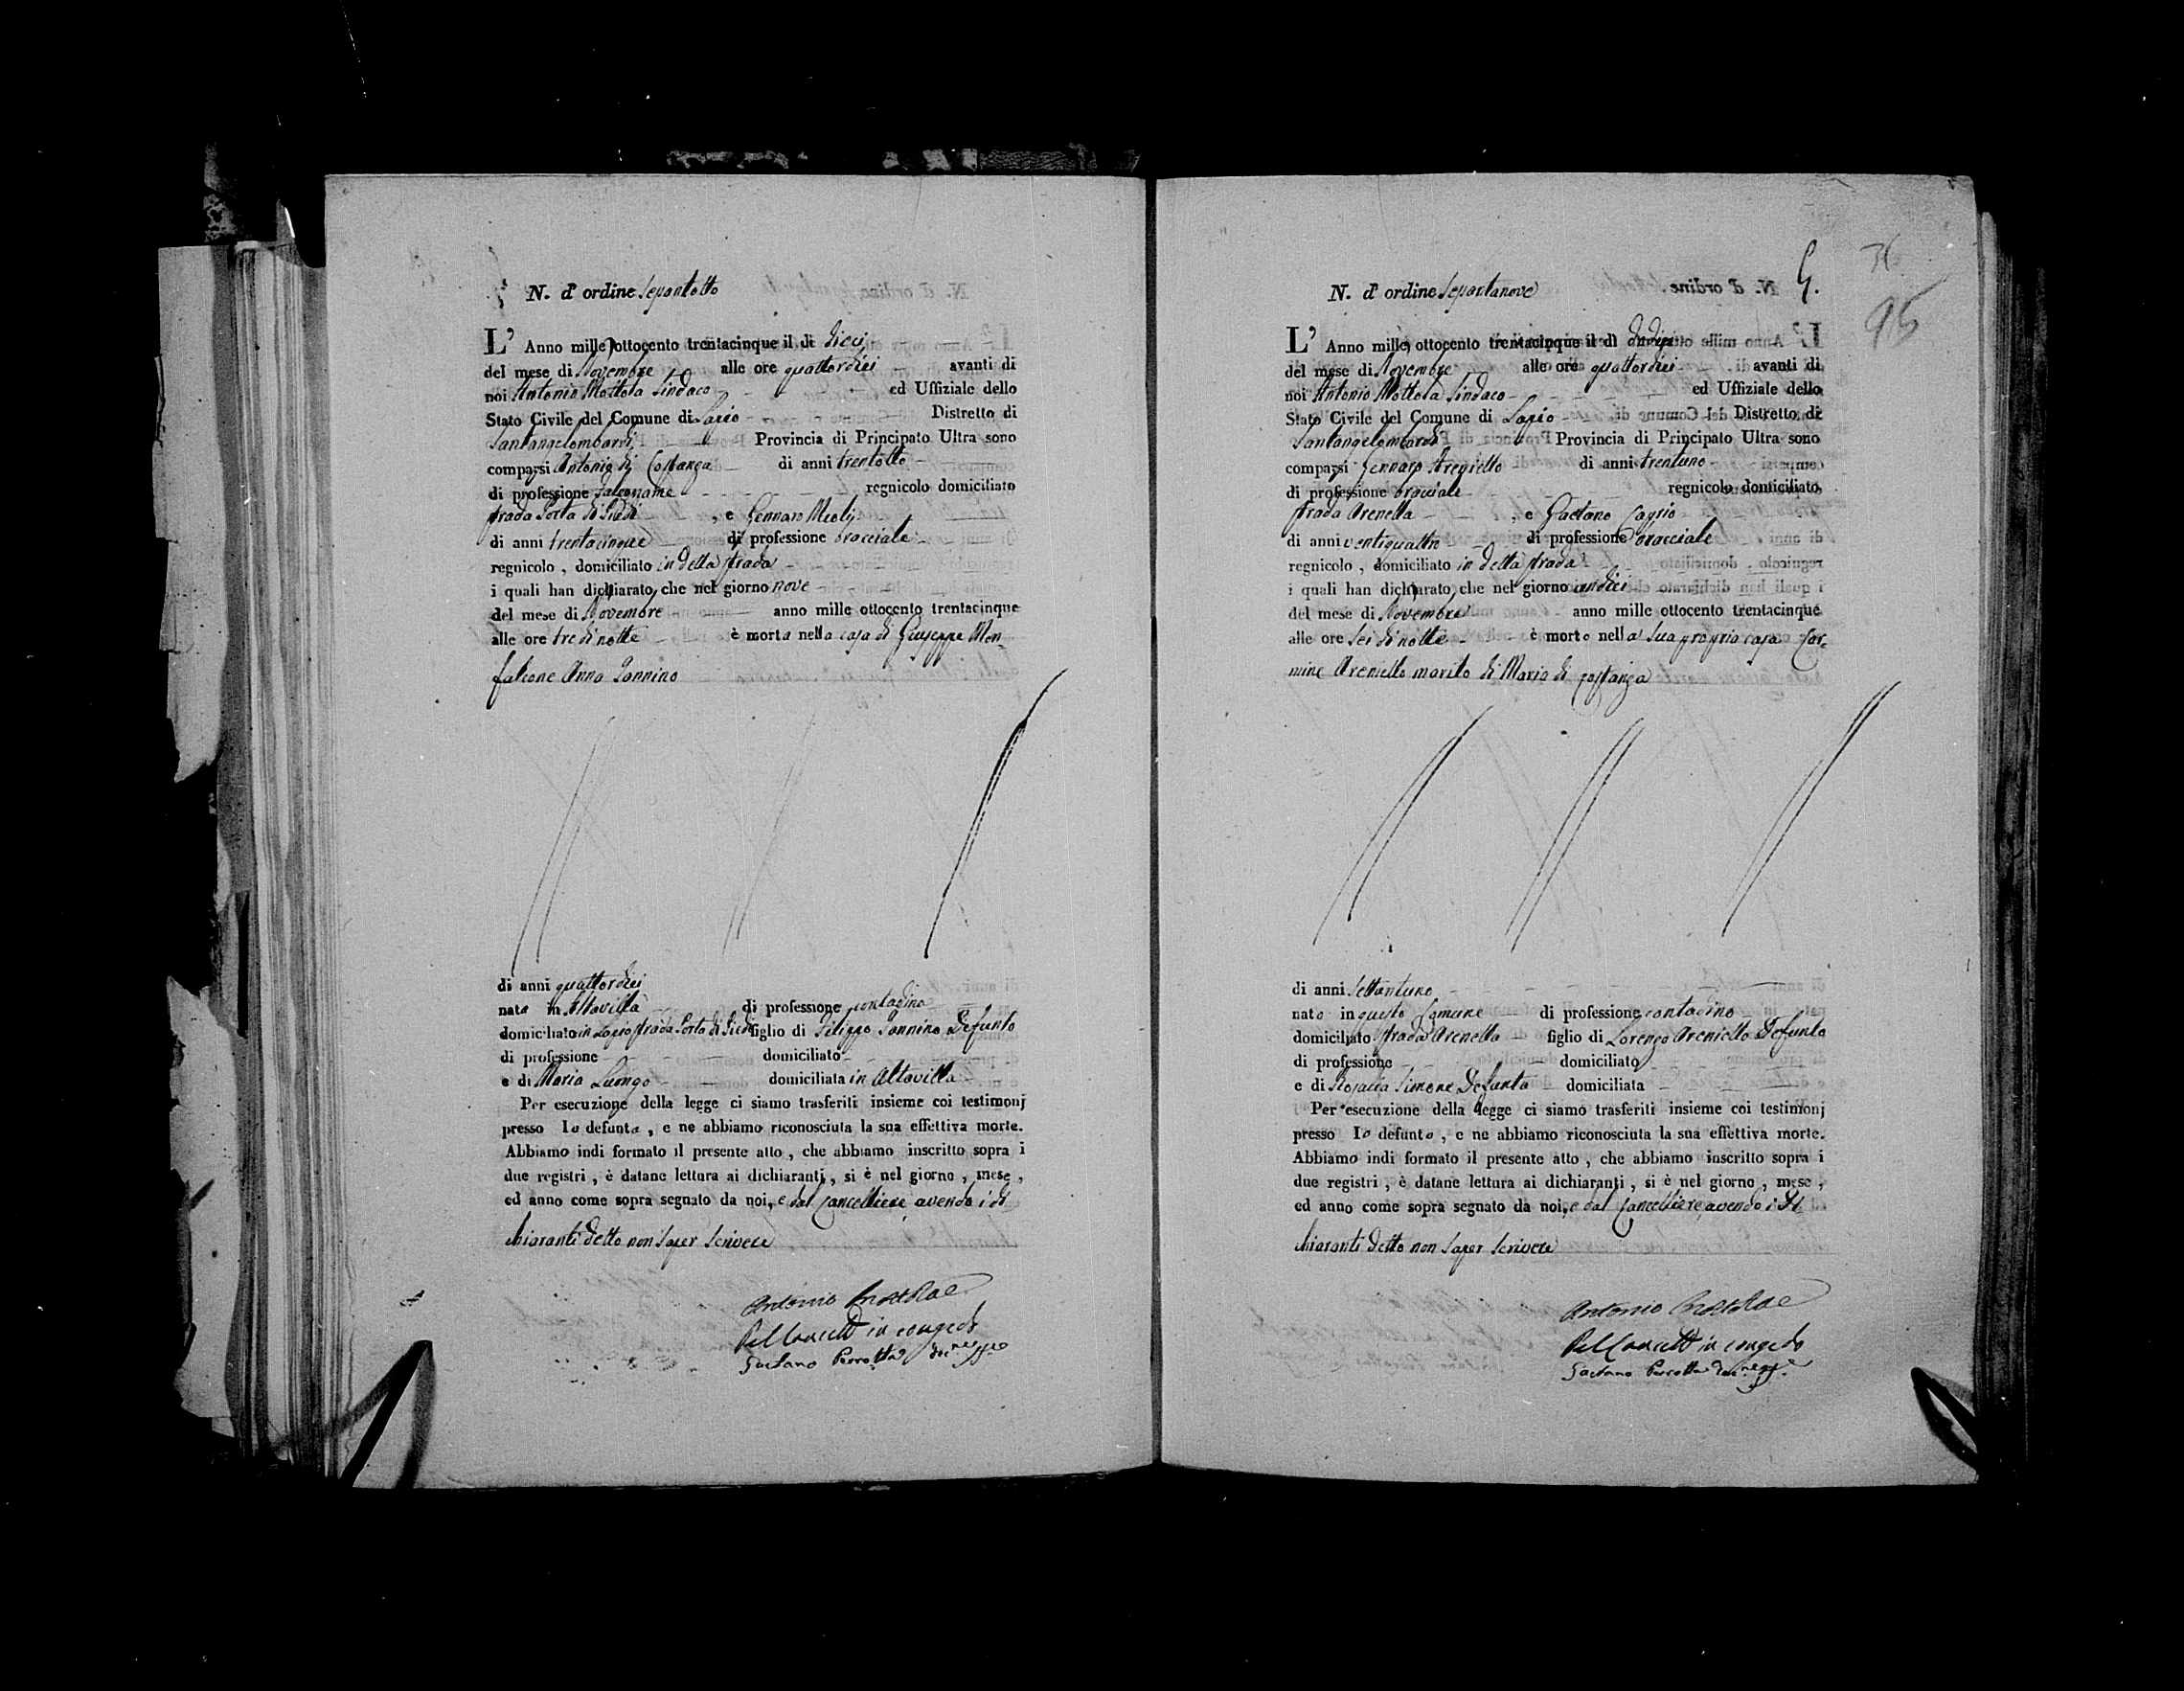 N. d' ordine Sessantotto
L' Anno mille ottocento trentacinque il dì dieci
del mese di Novembre alle ore quattordici avanti di
noi Antonio Mottola Sindaco ed Uffiziale dello
Stato Civile del Comune di Lapio Distretto di
Santangelombardi Provincia di Principato Ultra sono
comparsi Antonio di Costanza di anni trentotto
di professione falegname regnicolo domiciliato
strada Porta di Piedi , e Gennaro
di anni trentacinque di professione bracciale
regnicolo , domiciliato in detta strada
i quali han dichiarato, che nel giorno nove
del mese di Novembre anno mille ottocento trentacinque
alle ore tre di notte è morta nella casa di Giuseppe Mon-
falcone Anna Iannino
di anni quattordici
nata in Altavilla di professione contadina
domiciliato in Lapio strada Porta di Piedi figlio di Filippo Iannino Defunto
di professione domiciliato
e di Maria Luongo domiciliata in Altavilla
Per esecuzione della legge ci siamo trasferiti insieme coi testimonj
presso la defunta , e ne abbiamo riconosciuta la sua effettiva morte.
Abbiamo indi formato il presente atto , che abbiamo inscritto sopra i
due registri , è datane lettura ai dichiaranti, si è nel giorno , mese ,
ed anno come sopra segnato da noi, e dal Cancelliere avendo i di
chiaranti detto non saper scrivere
Antonio Mottolae
Pel Cancell in congedo
Gaetano Perrotta
N. d' ordine Sessantanove
G.
36
95
L' Anno mille ottocento trentacinque il dì dodici
del mese di Novembre alle ore quattordici avanti di
noi Antonio Mottola Sindaco ed Uffiziale dello
Stato Civile del Comune di Lapio Distretto di
Santangelombardi Provincia di Principato Ultra sono
comparsi Gennaro Areniello di anni trentuno
di professione bracciale regnicolo domiciliato
strada Arenella , e Gaetano Caprio
di anni ventiquattro di professione bracciale
regnicolo , domiciliato in detta strada
i quali han dichiarato, che nel giorno undici
del mese di Novembre anno mille ottocento trentacinque
alle ore sei di notte è morto nella sua propria casa Car-
mine Areniello marito di Maria di Costanza
di anni Settantuno
nato in questo Comune di professione contadino
domiciliato strada Arenella figlio di Lorenzo Areniello Defunto
di professione domiciliato
e di Rosaria Simone Defunta domiciliata
Per esecuzione della legge ci siamo trasferiti insieme coi testimonj
presso lo defunto , e ne abbiamo riconosciuta la sua effettiva morte.
Abbiamo indi formato il presente atto , che abbiamo inscritto sopra i
due registri , è datane lettura ai dichiaranti , si è nel giorno , mese ,
ed anno come sopra segnato da noi, e dal Cancelliere avendo i di
chiaranti detto non saper scrivere
Antonio Mottolae
Pel Cancell in congedo
Gaetano Perrotta